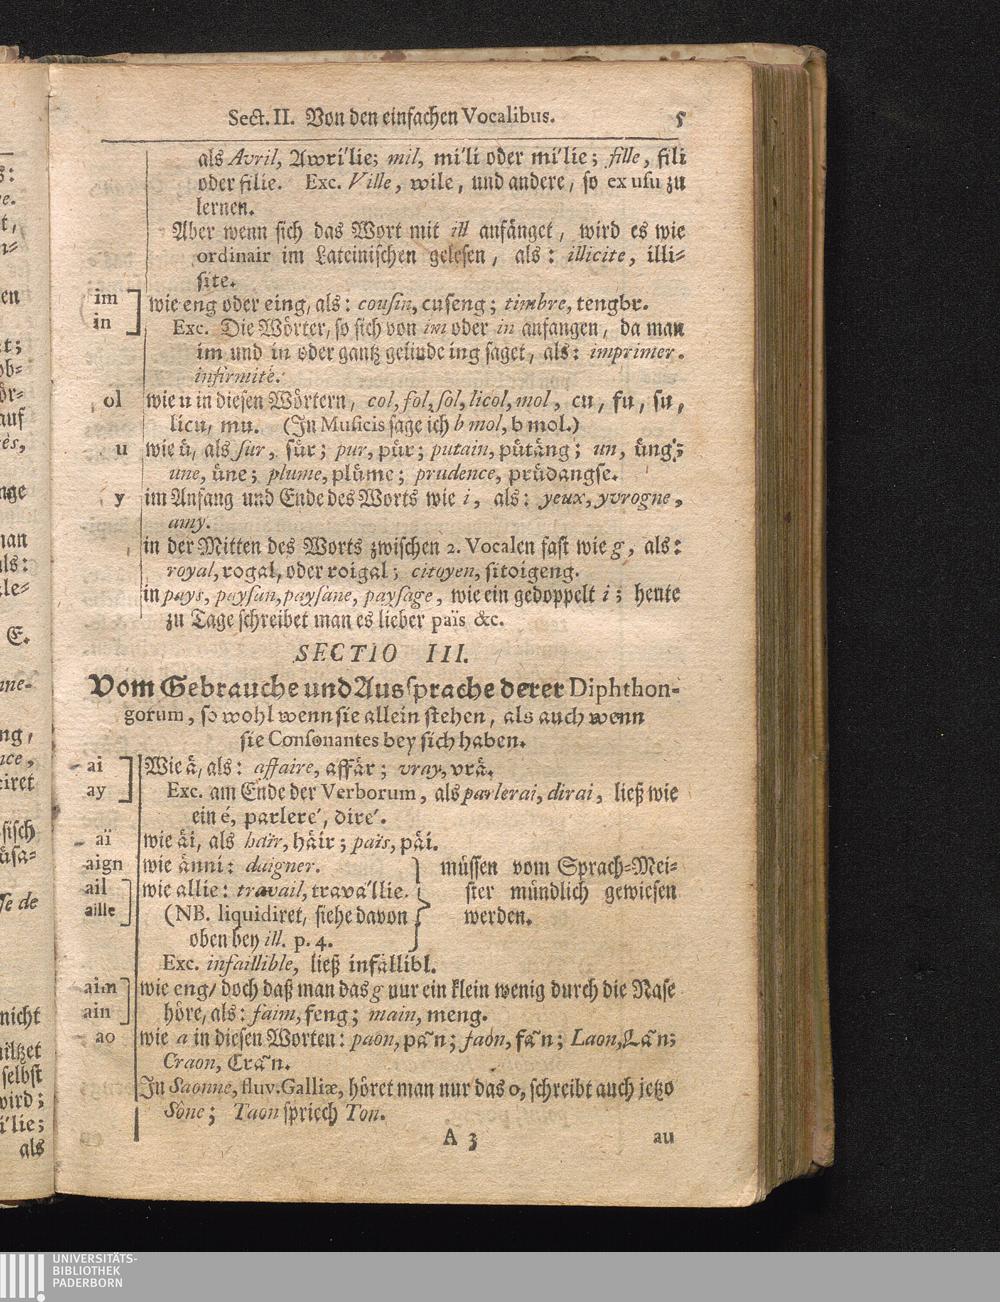 Sect. II. Von den einfachen Vocalibus. 5
als Avril, Awri'lie; mil, mi'li oder mi'lie; fille, fili
oder filie. Exc. Ville, wile, und andere, so ex usu zu
lernen.
Aber wenn sich das Wort mit ill anfänget, wird es wie
ordinair im Lateinischen gelesen, als: illicite, illi-
site.
im
in
wie eng oder eing, als: cousin, cuseng; timbre, tengbr.
Exc. Die Wörter, so sich von im oder in anfangen, da man
im und in oder gantz gelinde ing saget, als: imprimer.
infirmité.
ol wie u in diesen Wörtern, col, fol, sol, licol, mol, cu, fu, su,
licu, mu. (In Musicis sage ich b mol, b mol.)
u wie ü, als sur, sür; pur, pür; putain, pütäng; un, üng;
une, üne; plume, plüme; prudence, prüdangse.
y im Anfang und Ende des Worts wie i, als: yeux, yvrogne,
amy.
in der Mitten des Worts zwischen 2. Vocalen fast wie g, als:
royal, rogal, oder roigal; citoyen, sitoigeng.
in pays, paysan, paysane, paysage, wie ein gedoppelt i; heute
zu Tage schreibet man es lieber païs &c.
SECTIO III.
Vom Gebrauche und Aussprache derer Diphthon-
gorum, so wohl wenn sie allein stehen, als auch wenn
sie Consonantes bey sich haben.
ai
ay
Wie ä, als: affaire, affär; vray, vrä.
Exc. am Ende der Verborum, als parlerai, dirai, ließ wie
ein é, parleré, diré.
aï wie äi, als haïr, häir; païs, päi.
aign wie änni: daigner.
ail
aille
wie allie: travail, trava'llie.
(NB. liquidiret, siehe davon
oben bey ill. p. 4.
müssen vom Sprach-Mei-
ster mündlich gewiesen
werden.
Exc. infaillible, ließ infällibl.
aim
ain
wie eng/ doch daß man das g nur ein klein wenig durch die Nase
höre, als: faim, feng; main, meng.
ao wie a in diesen Worten: paon, pa~n; faon, fa~n; Laon, La~n;
Craon, Cra~n.
In Saonne, fluv. Galliæ, höret man nur das o, schreibt auch jetzo
Sône; Taon spriech Ton.
A 3 au
UNIVERSITÄTS-
BIBLIOTHEK
PADERBORN